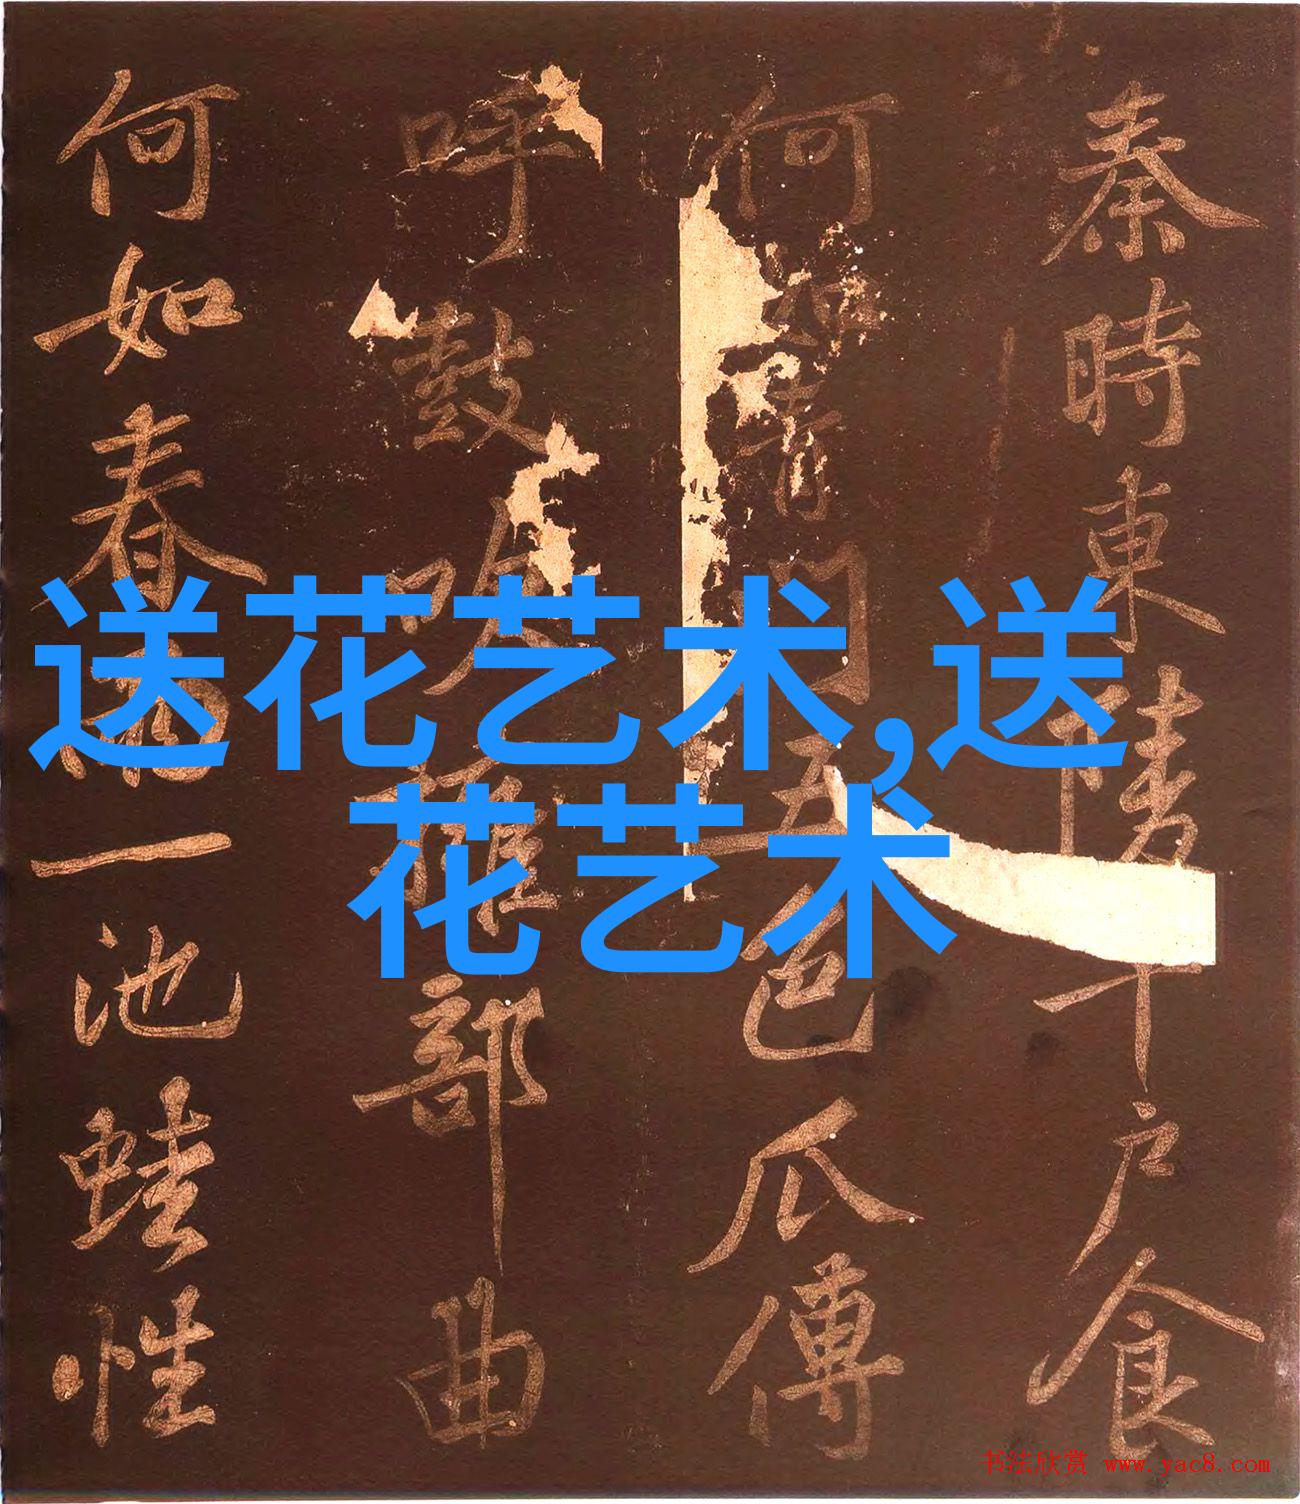 秦時東陵千戶食
何如青門五色瓜傳
呼鼓吹擁部曲
何如春雨一池蛙性
送花艺术,送
花艺术
书法欣赏 www.yac8.com